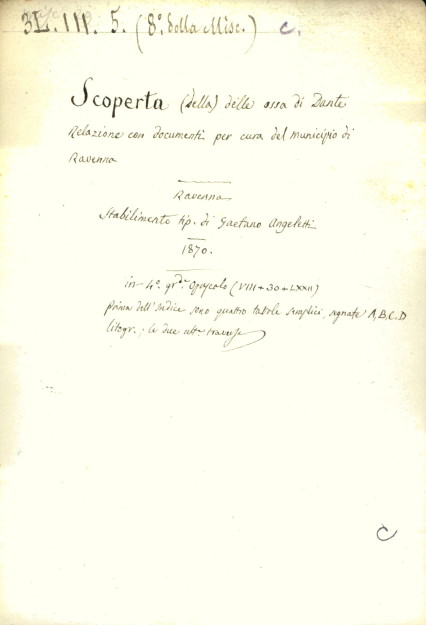 3L.III. 5. (8º della Misc.) C.
Scoperta (della) delle ossa di Dante
Relazione con documenti per cura del Municipio di
Ravenna
Ravenna
Stabilimento tip. di Gaetano Angeletti
1870.
in 4º. gr.de Opuscolo (VIII + 30 + LXXII)
prima dell'Indice sono quattro tavole semplici, segnate A, B, C. D
litogr.; le due ult.e
C